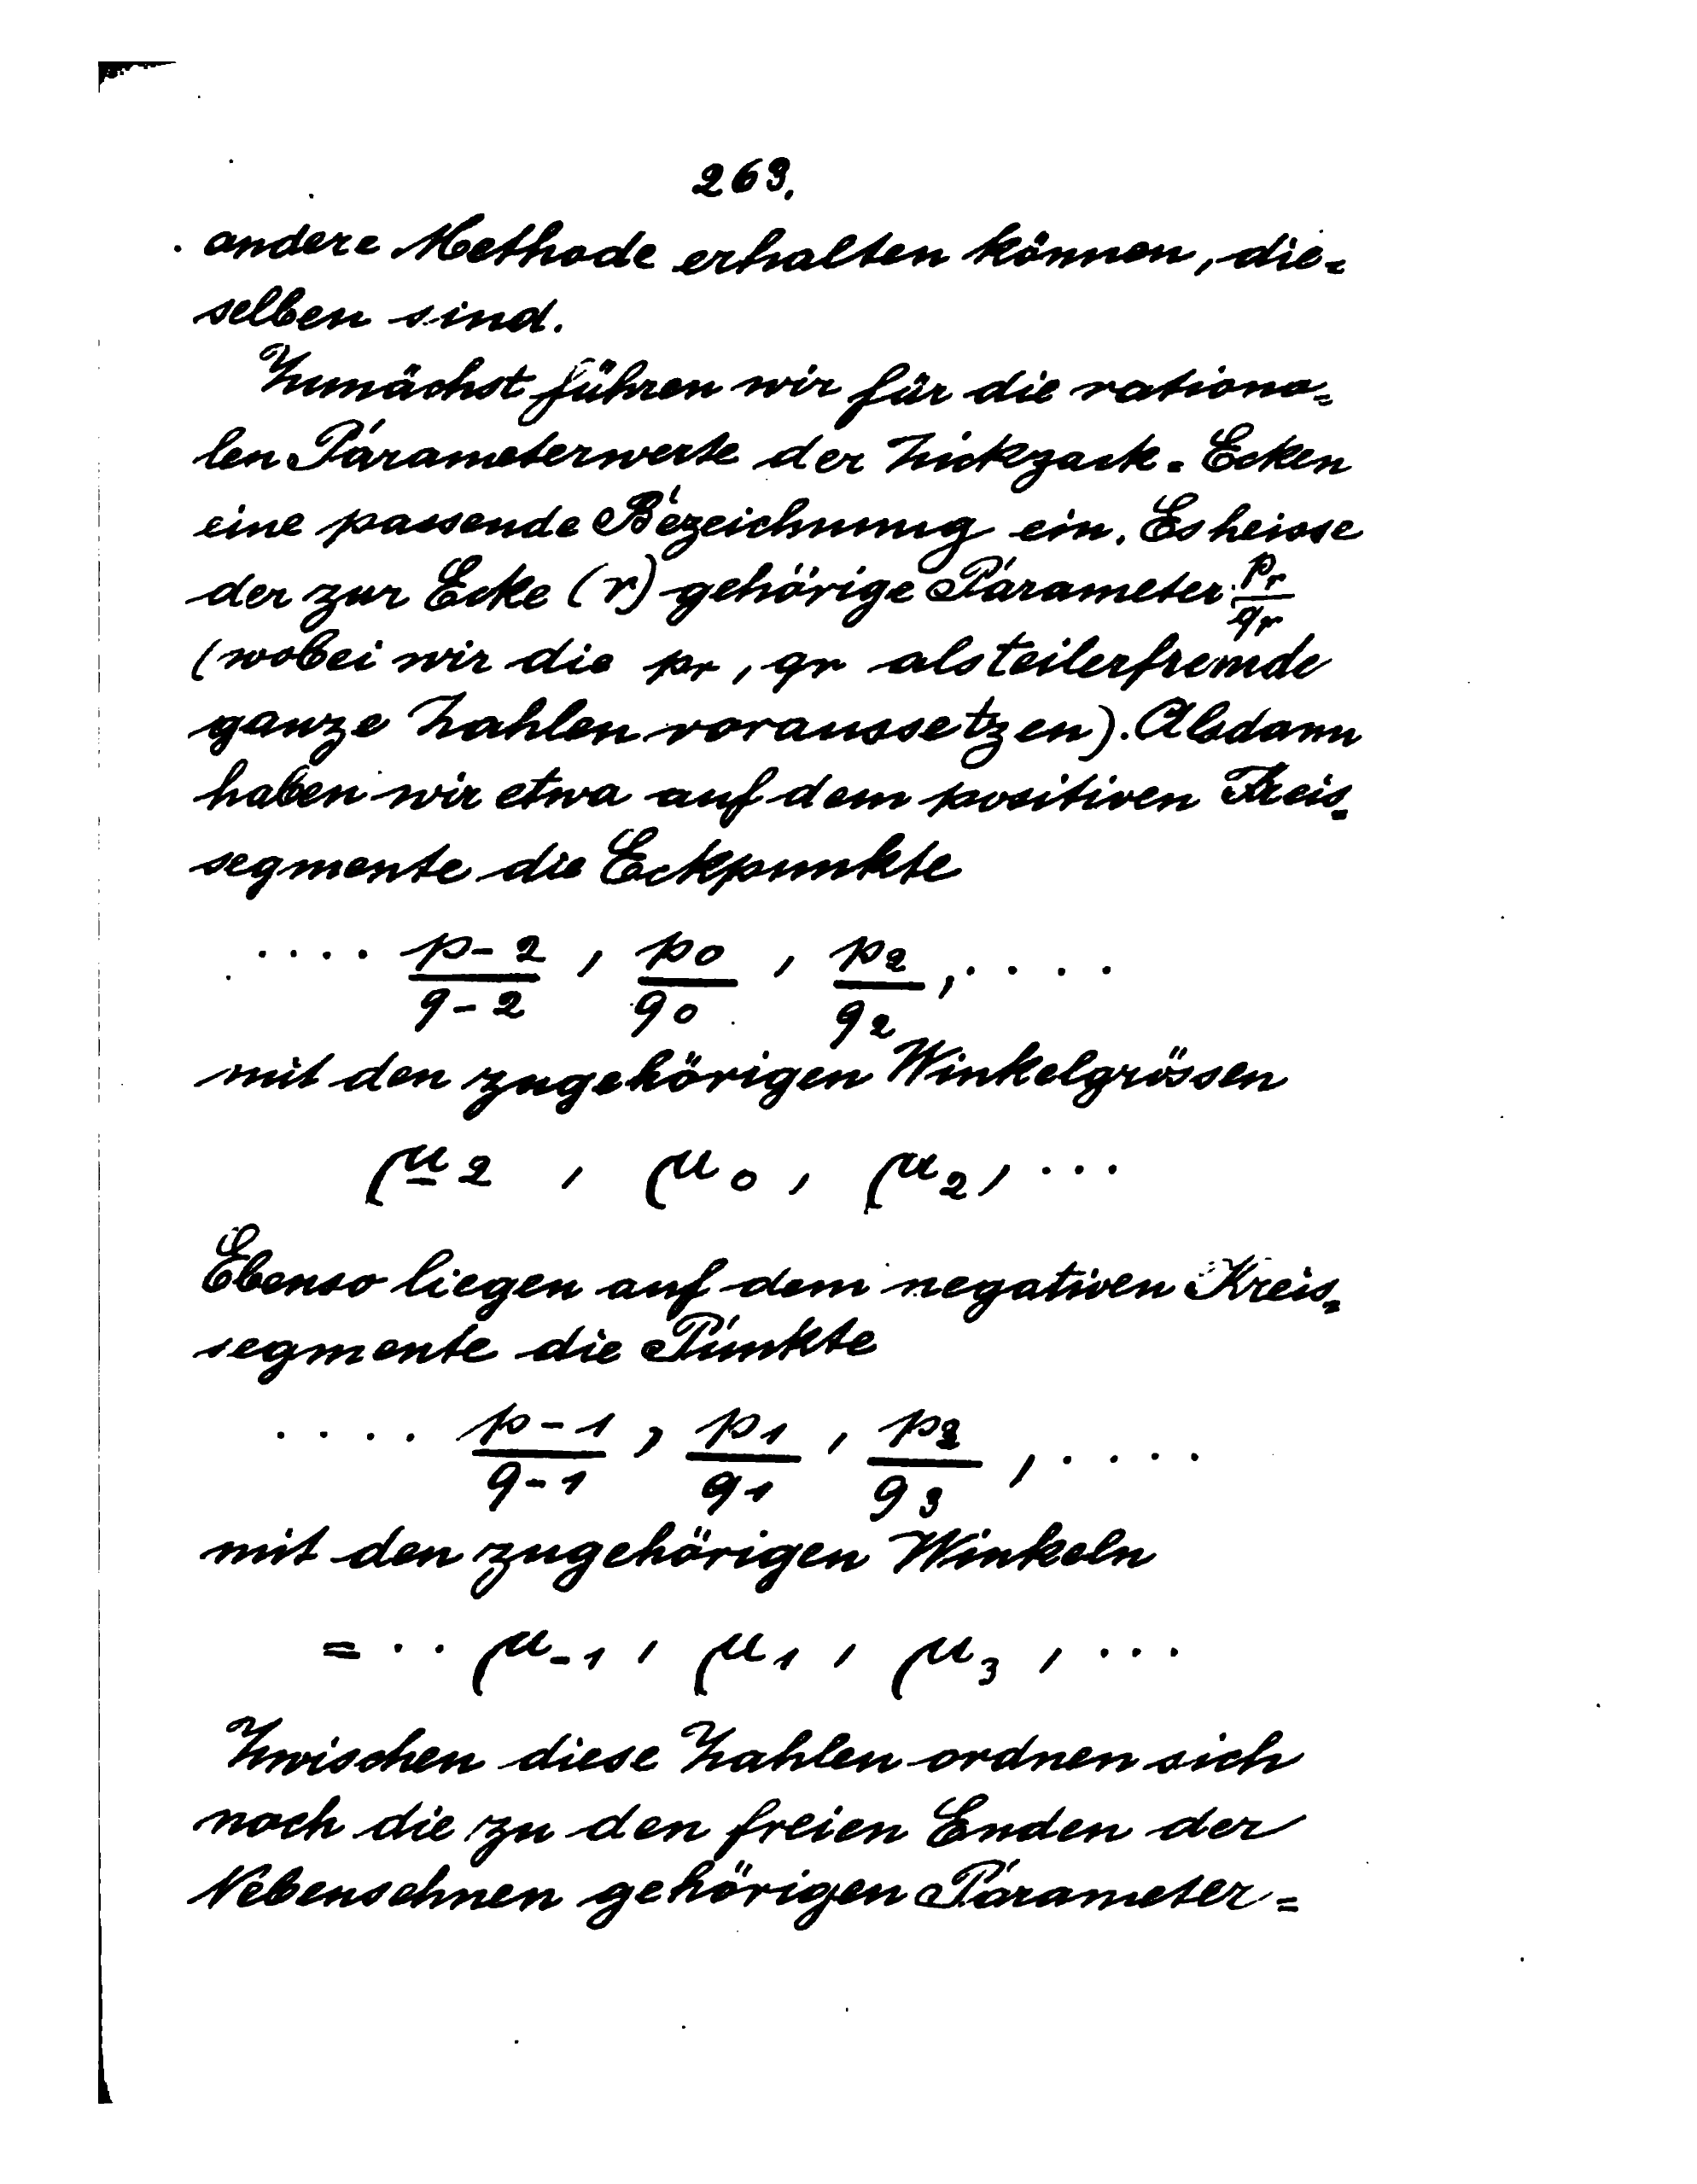 263.
andere Methode erhalten können, die=
selben sind.
Zunächst führen wir für die rationa=
len Parameterwerte der Zickzack=Ecken
eine passende Bezeichnung ein. Es heisse
der zur Ecke (r) gehörige Parameter p_r/q_r
(wobei wir die p_r, q_r als teilerfremde
ganze Zahlen voraussetzen). Alsdann
haben wir etwa auf dem positiven Kreis=
segmente die Eckpunkte
.... p_-2/q_-2, p_0/q_0, p_2/q_2, ....
mit den zugehörigen Winkelgrössen
μ_-2, μ_0, μ_2, ...
Ebenso liegen auf dem negativen Kreis=
segmente die Punkte
.... p_-1/q_-1, p_1/q_1, p_3/q_3, ....
mit den zugehörigen Winkeln
= .. μ_-1, μ_1, μ_3, ...
Zwischen diese Zahlen ordnen sich
noch die zu den freien Enden der
Nebensehnen gehörigen Parameter=